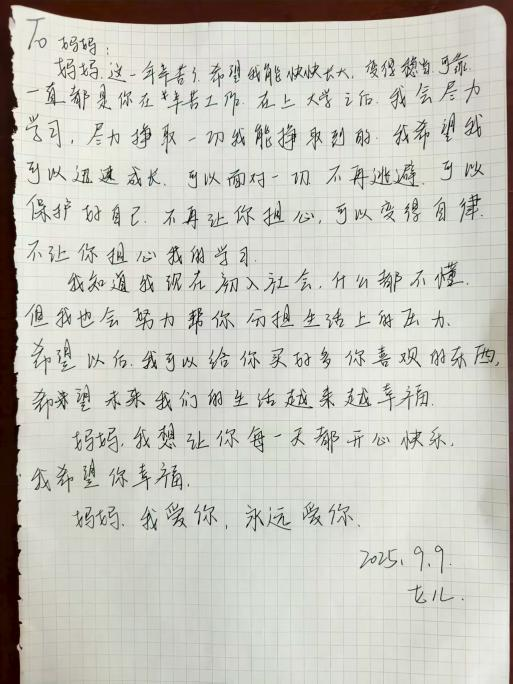 To 妈妈:
妈妈,这一年辛苦了.希望我能快快长大,变得稳当.可靠.
一直都是你在辛苦工作.在上大学之后.我会尽力
学习,尽力挣取一切我能挣取到的.我希望我
可以迅速成长.可以面对一切.不再逃避.可以
保护好自己.不再让你担心,可以变得自律.
不让你担心我的学习.
我知道我现在初入社会,什么都不懂.
但我也会努力帮你分担生活上的压力.
希望以后.我可以给你买好多你喜观的东西,
希望未来我们的生活越来越幸福.
妈妈,我想让你每一天都开心快乐.
我希望你幸福.
妈妈.我爱你,永远爱你.
2025.9.9.
女儿.